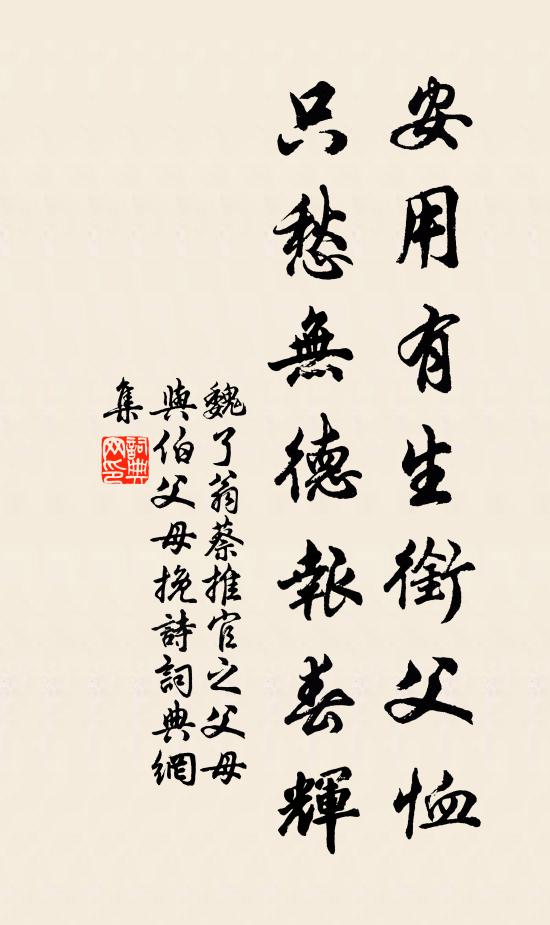 安用有生銜父恤
只愁無德報春輝
魏了翁蔡推官之父母
與伯父母挽詩詞典網
集
詞典網印